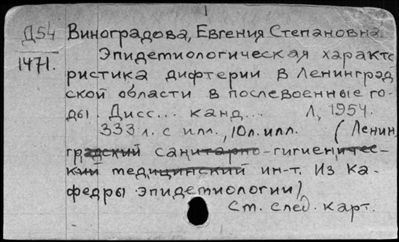 Д54 Виноградова, Евгения Степановна.
Эпидемиологическая характе
1471. ристика дифтерии в Ленинград
ской области в послевоенные го-
ды. Дисс... канд... Л, 1954.
333 л. с илл., 10л. илл. (Ленин
градский санитарно-гигиениче-
кий медицинский ин-т. Из ка-
федры эпидемиологии)
См. след. карт.